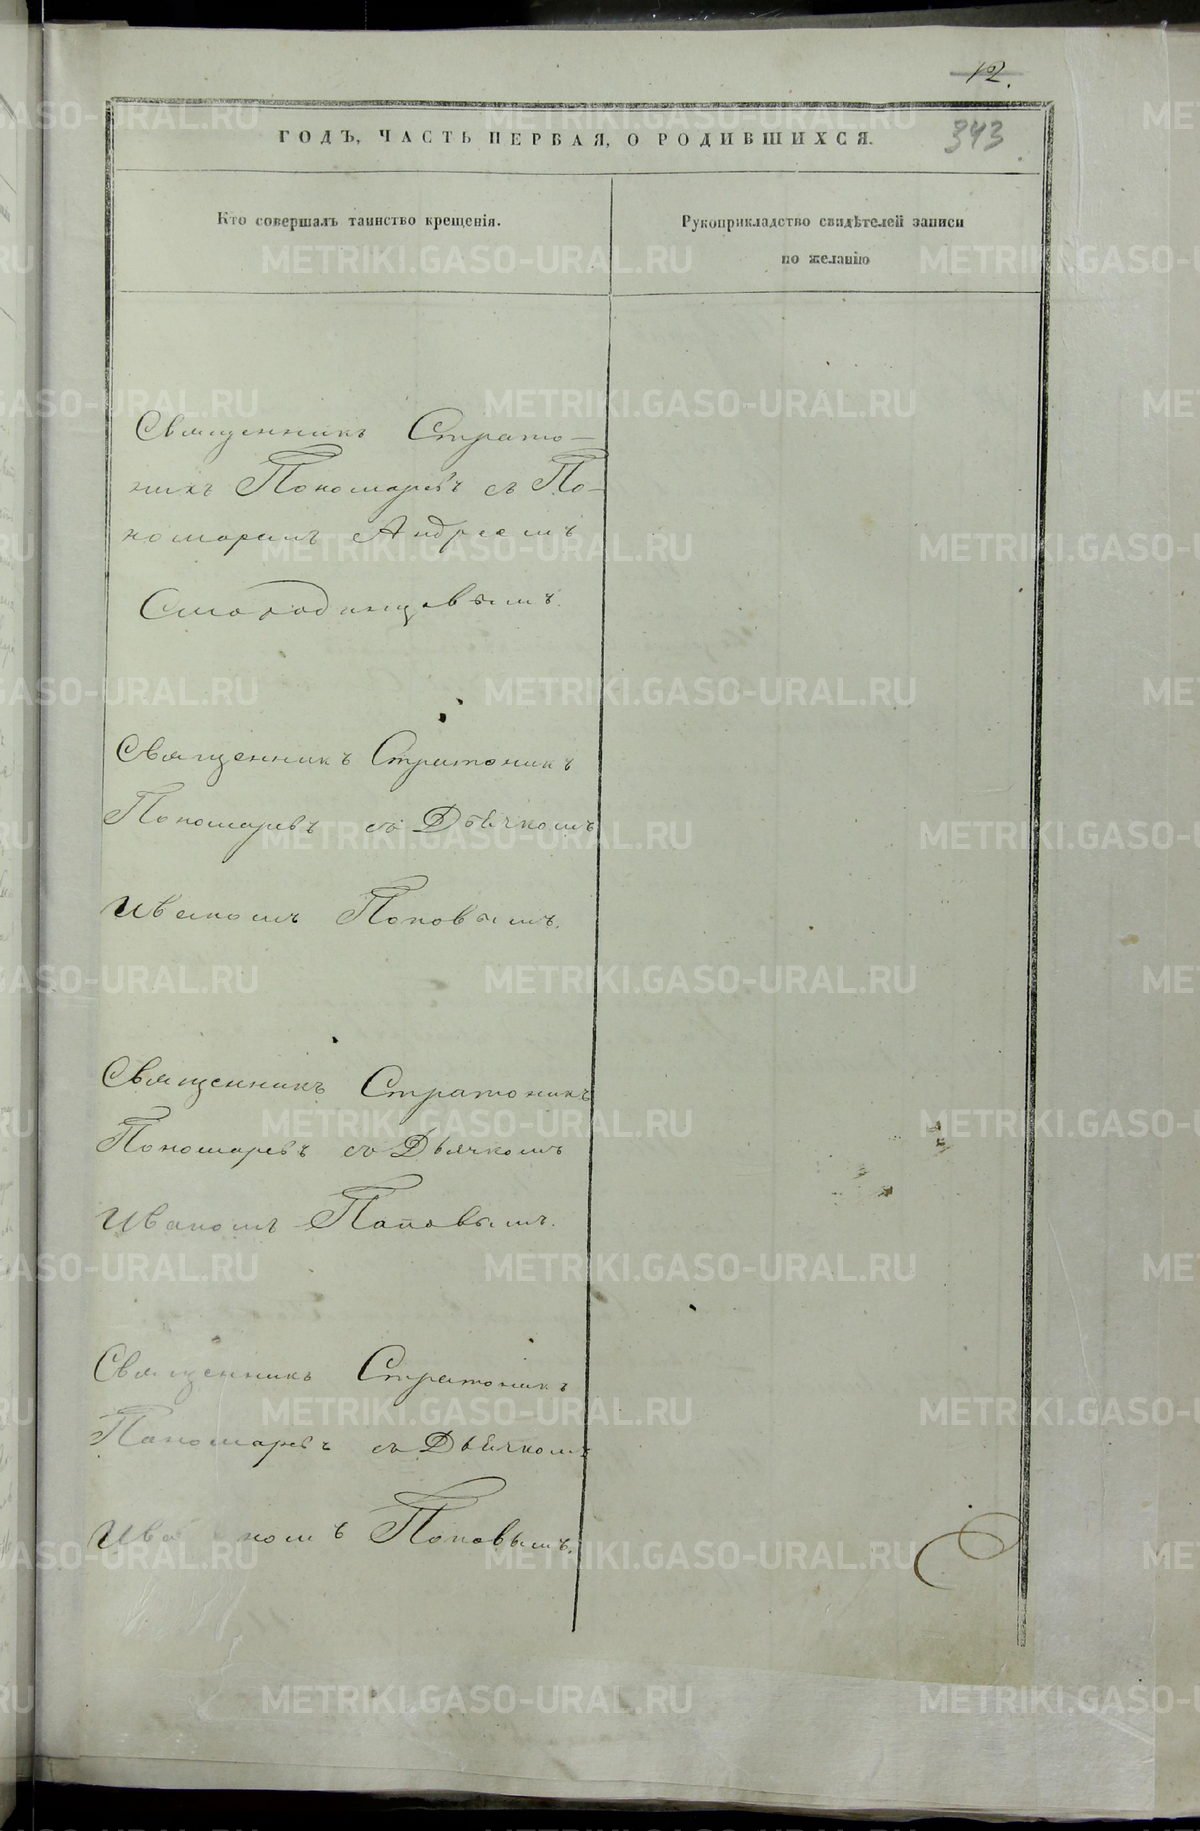 12.
343
ГОДЪ, ЧАСТЬ ПЕРВАЯ, О РОДИВШИХСЯ.
Кто совершалъ таинство крещенія.
Рукоприкладство свидѣтелей записи
по желанію
Священникъ Страто-
никъ Пономаревъ съ По-
номаремъ Андреемъ
Смородинцовымъ.
Священникъ Стратоникъ
Пономаревъ съ Дьячкомъ
Иваномъ Поповымъ.
Священникъ Стратоникъ
Пономаревъ съ Дьячкомъ
Иваномъ Поповымъ.
Священникъ Стратоникъ
Пономаревъ съ Дьячкомъ
Иваномъ Поповымъ.
METRIKI.GASO-URAL.RU